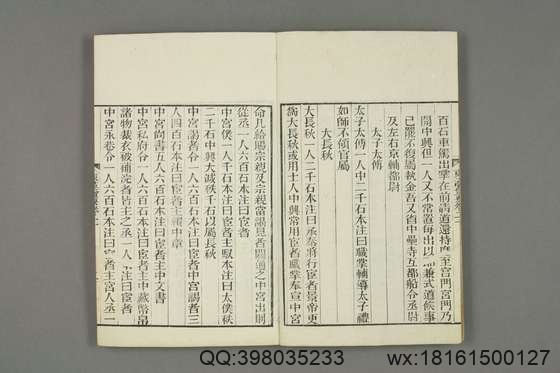 百石車駕出掌在前清道還持麾至宮門宮門乃
開中興但一人又不常置每出以郎兼式道候事
已罷不復屬執金吾又省中壘寺互都船令丞尉
及左右京輔都尉
太子太傅
太子太傅一人中二千石本注曰職掌輔導太子禮
如師不領官屬
大長秋
大長秋一人二千石本注曰承秦將行宦者景帝更
為大長秋或用士人中興常用宦者職掌奉宣中宮
命凡給賜宗親及宗親當謁見者關通之中宮出則
從丞一人六百石本注曰宦者
中宮僕一人千石本注曰宦者主馭本注曰太僕秩
二千石中興大減秩千石以屬長秋
中宮謁者令一人六百石本注曰宦者中宮謁者三
人四百石本注曰宦者主報中章
中宮尚書五人六百石本注曰宦者主中文書
中宮私府令一人六百石本注曰宦者主中藏幣帛
諸物裁衣被補浣者皆主之丞一人本注曰宦者
中宮永巷令一人六百石本注曰宦者主宮人丞一
QQ:398035233 wx:18161500127